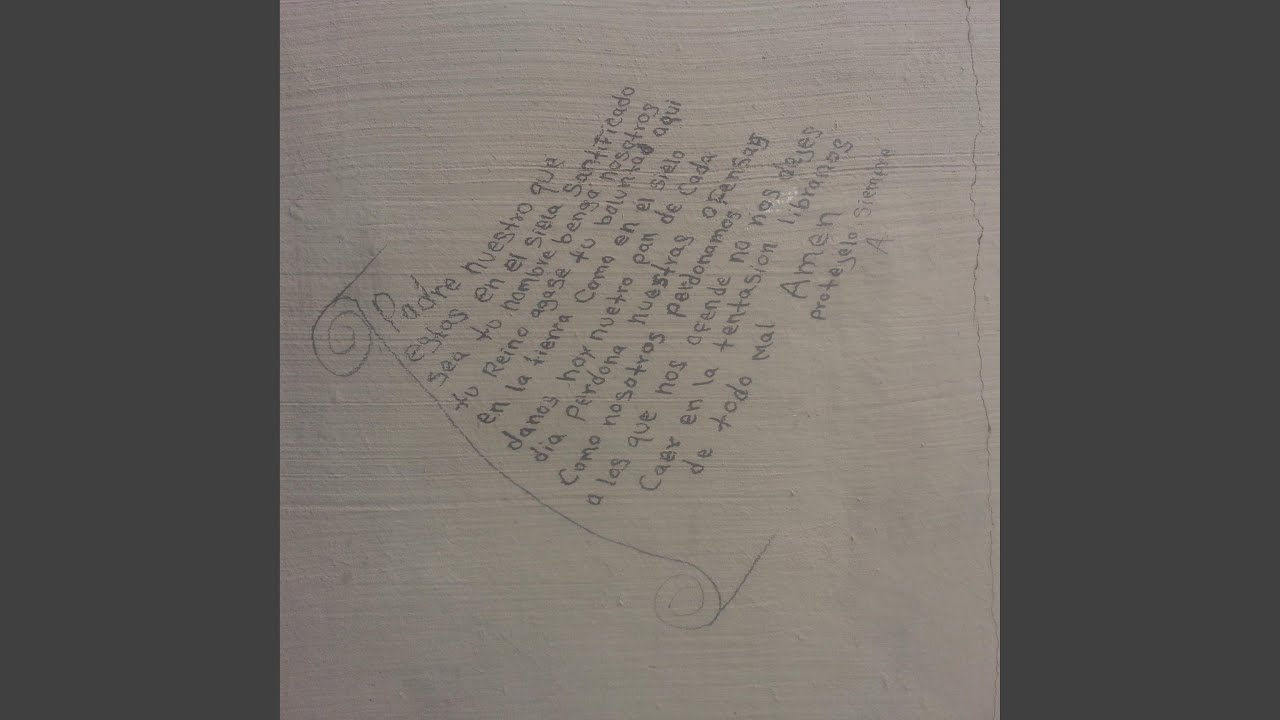 Padre nuestro que
estas en el siela Santificado
sea tu nombre benga nosotros
tu Reino agase tu boluntad aqui
en la tierra Como en el sielo
danos hoy nuetro pan de Cada
dia Perdona nuestras ofensas
Como nosotros perdonamos
a los que nos ofende no nos dejes
Caer en la tentasion libranos
de todo Mal Amen
Protejelo Siempre
A